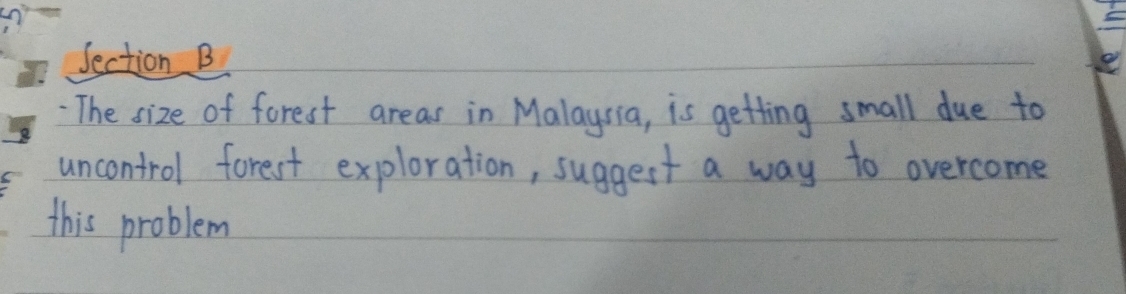 Section B
- The size of forest areas in Malaysia, is getting small due to
uncontrol forest exploration, suggest a way to overcome
this problem